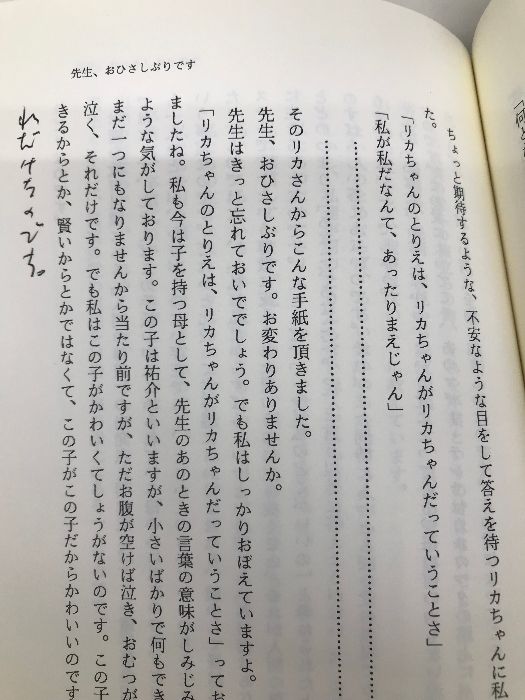 先生、おひさしぶりです
ちょっと期待するような、不安なような目をして答えを待つリカちゃんに私
た。
「リカちゃんのとりえは、リカちゃんがリカちゃんだっていうことさ」
「私が私だなんて、あったりまえじゃん」
そのリカさんからこんな手紙を頂きました。
先生、おひさしぶりです。お変わりありませんか。
先生はきっと忘れておいででしょう。でも私はしっかりおぼえていますよ。
「リカちゃんのとりえは、リカちゃんがリカちゃんだっていうことさ」ってお
ましたね。私も今は子を持つ母として、先生のあのときの言葉の意味がしみじみ
ような気がしております。この子は祐介といいますが、小さいばかりで何もでき
まだ一つにもなりませんから当たり前ですが、ただお腹が空けば泣き、おむつが
泣く、それだけです。でも私はこの子がかわいくてしょうがないのです。この子
きるからとか、賢いからとかではなくて、この子がこの子だからかわいいのです